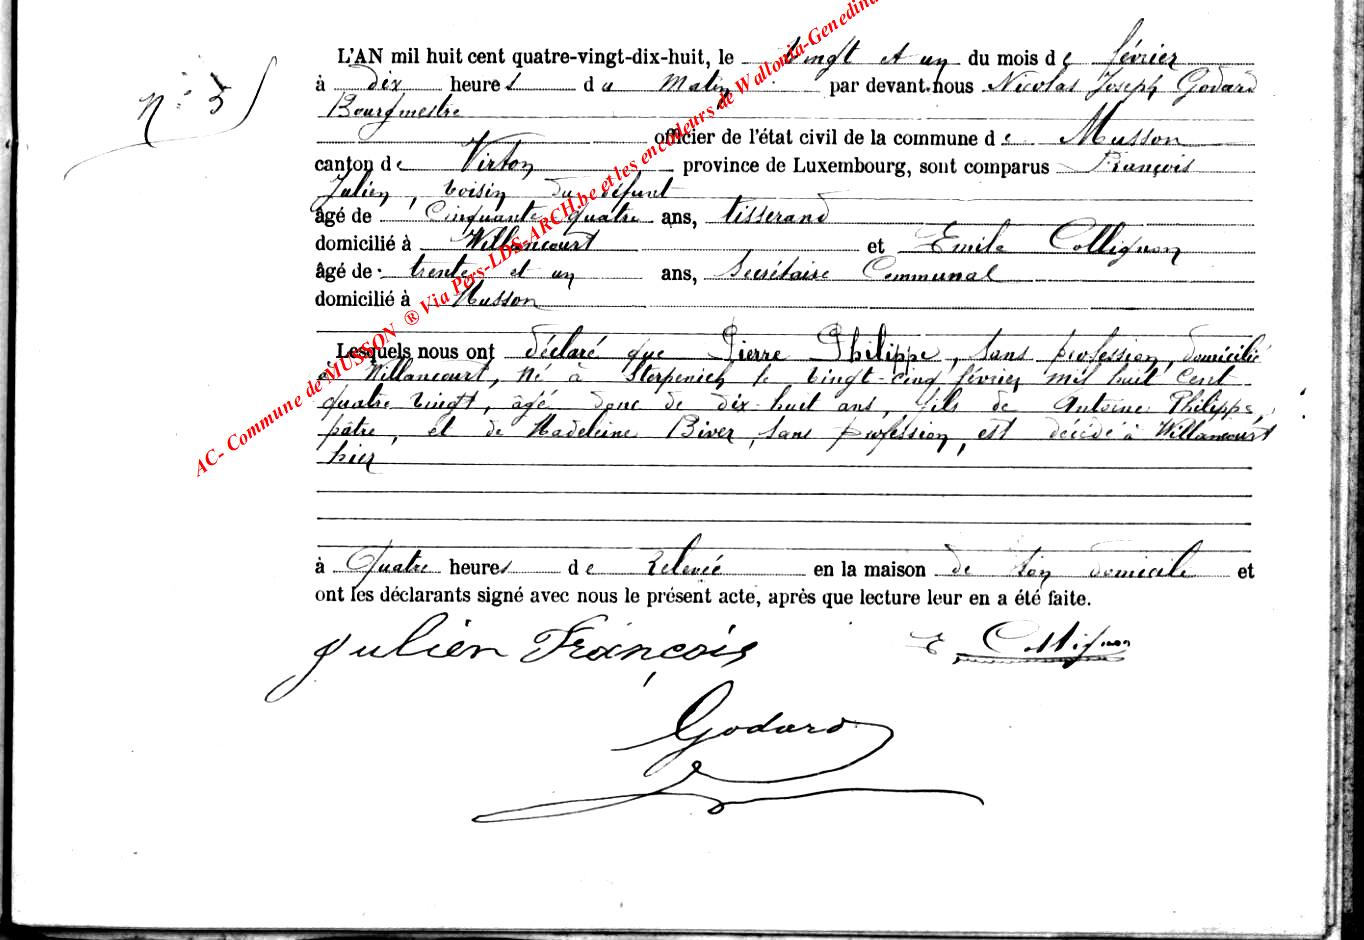 L'AN mil huit cent quatre-vingt-dix-huit, le vingt et un du mois de février
N° 5
à dix heures du matin par devant nous Nicolas Joseph Godard
Bourgmestre
officier de l'état civil de la commune de Musson
canton de Virton province de Luxembourg, sont comparus François
Julien, voisin du défunt
âgé de Cinquante quatre ans, tisserand
domicilié à Willancourt et Emile Collignon
âgé de trente et un ans, Secrétaire Communal
domicilié à Musson
Lesquels nous ont déclaré que Pierre Philippe, sans profession, domicilié
à Willancourt, né à Sterpenich le vingt-cinq février mil huit cent
quatre vingt, âgé donc de dix-huit ans, fils de Antoine Philippe,
pâtre, et de Madeleine Biver, sans profession, est décédé à Willancourt
hier
à quatre heures de relevée en la maison de son domicile et
ont les déclarants signé avec nous le présent acte, après que lecture leur en a été faite.
Julien François E Collignon
Godard
AC- Commune de MUSSON ® Via Pers-LDS-ARCH.be et les encodeurs de Wallonia-Genedina